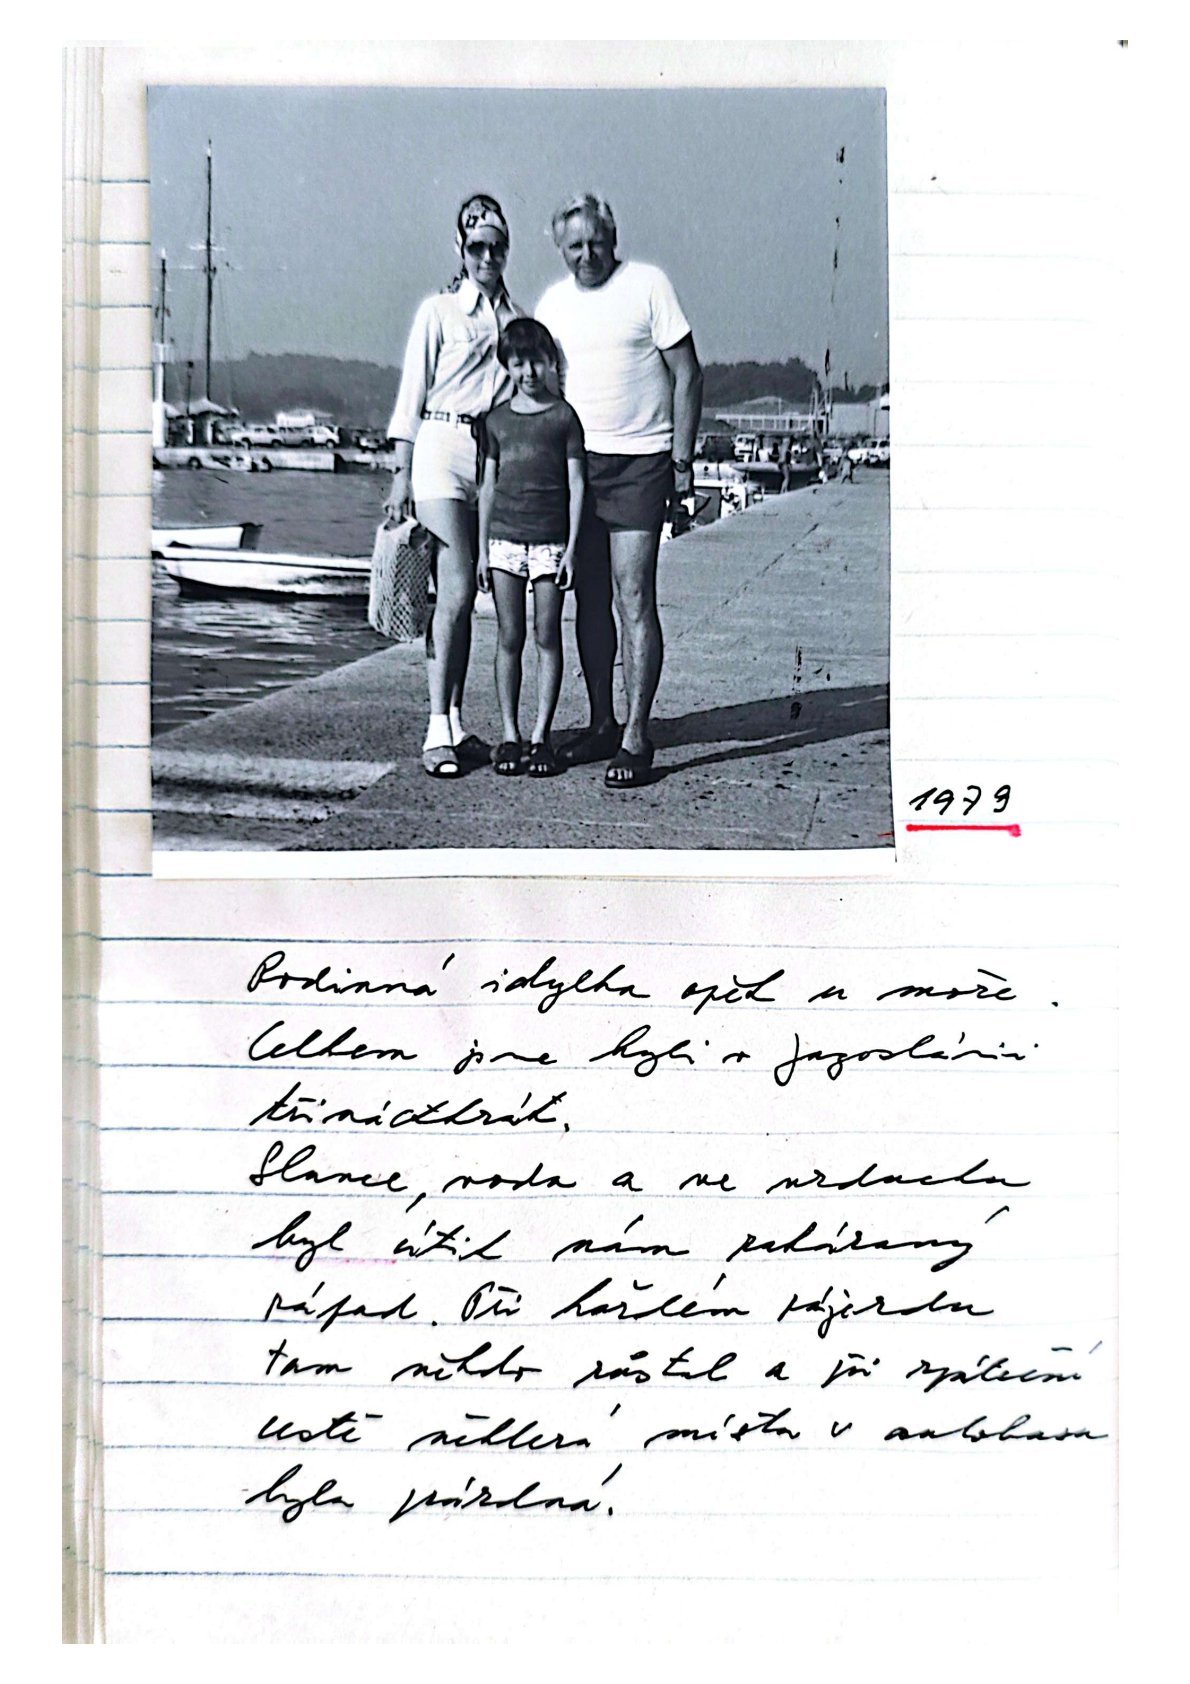 1979
Rodinná idylka opět u moře.
Celkem jsme byli v Jugoslávii
třináctkrát.
Slunce, voda a ve vzduchu
byl cítit nám zakázaný
západ. Při každém zájezdu
tam někdo zůstal a při zpáteční
cestě některá místa v autobusu
byla prázdná.